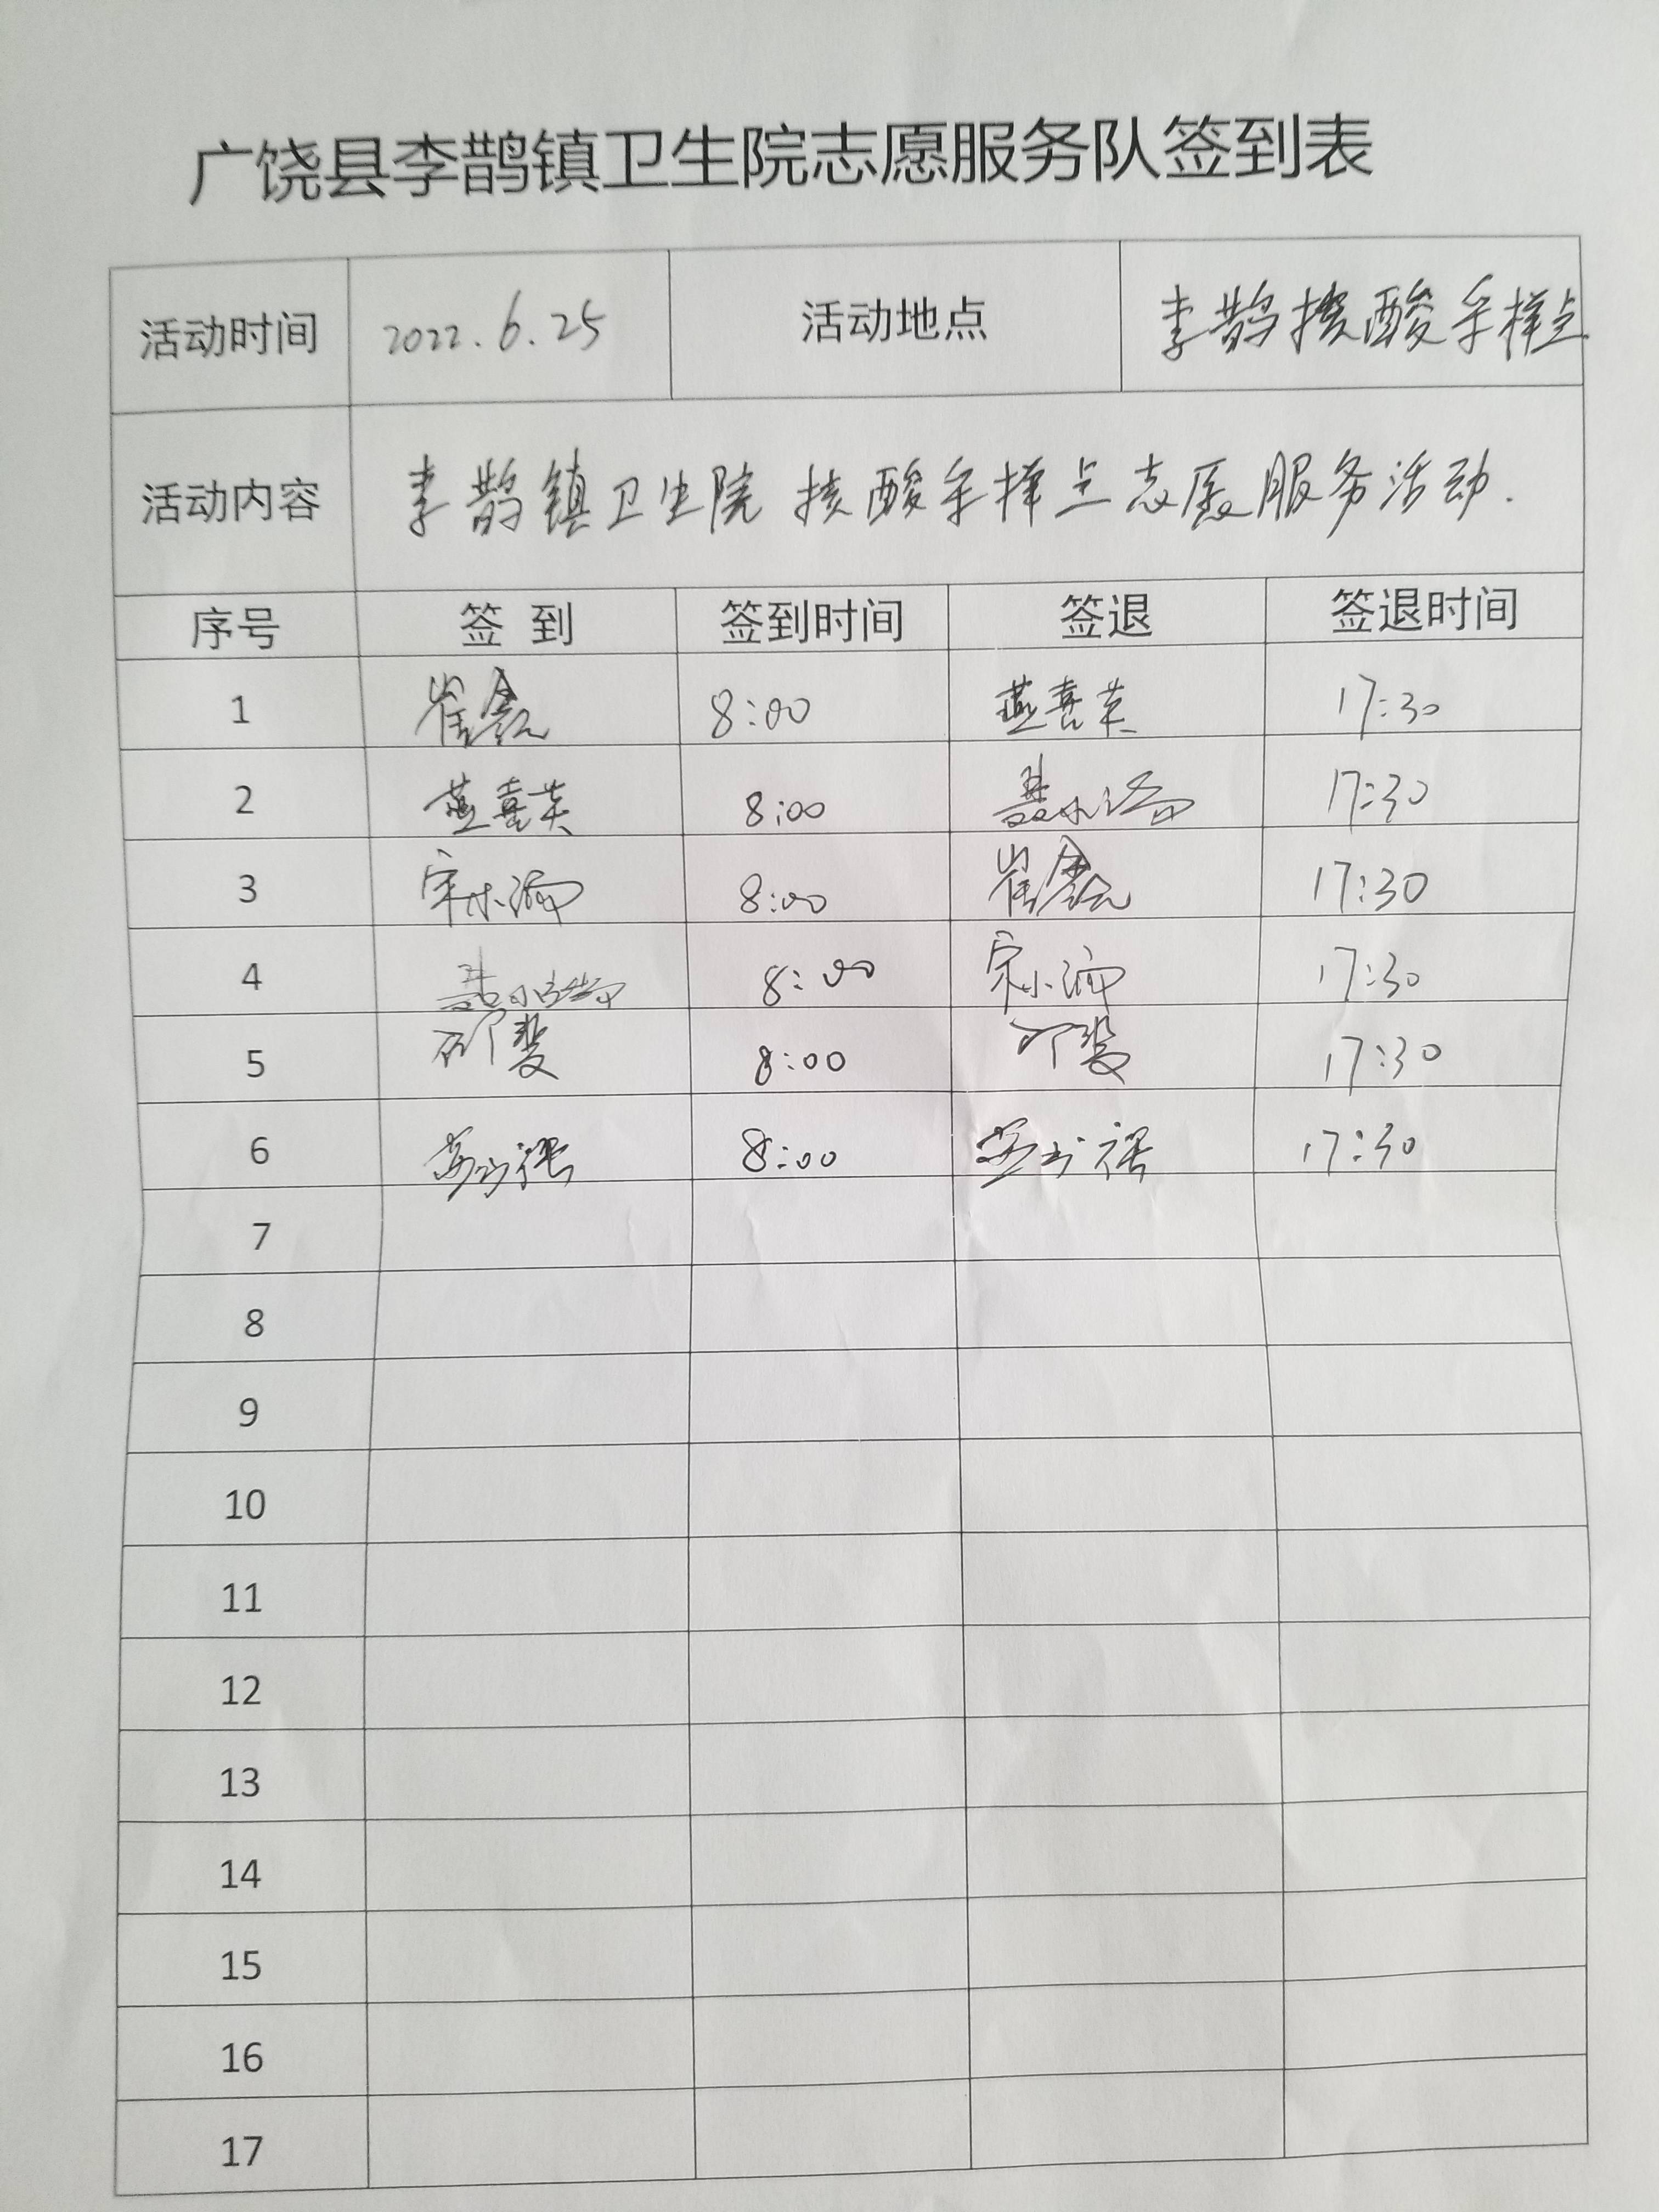 广饶县李鹊镇卫生院志愿服务队签到表
活动时间 2022.6.25 活动地点 李鹊核酸采样点
活动内容 李鹊镇卫生院核酸采样点志愿服务活动.
序号 签到 签到时间 签退 签退时间
1 崔鑫 8:00 燕喜英 17:30
2 燕喜英 8:00 17:30
3 宋小涵 8:00 崔鑫 17:30
4 8:00 宋小涵 17:30
5 8:00 17:30
6 8:00 17:30
7
8
9
10
11
12
13
14
15
16
17